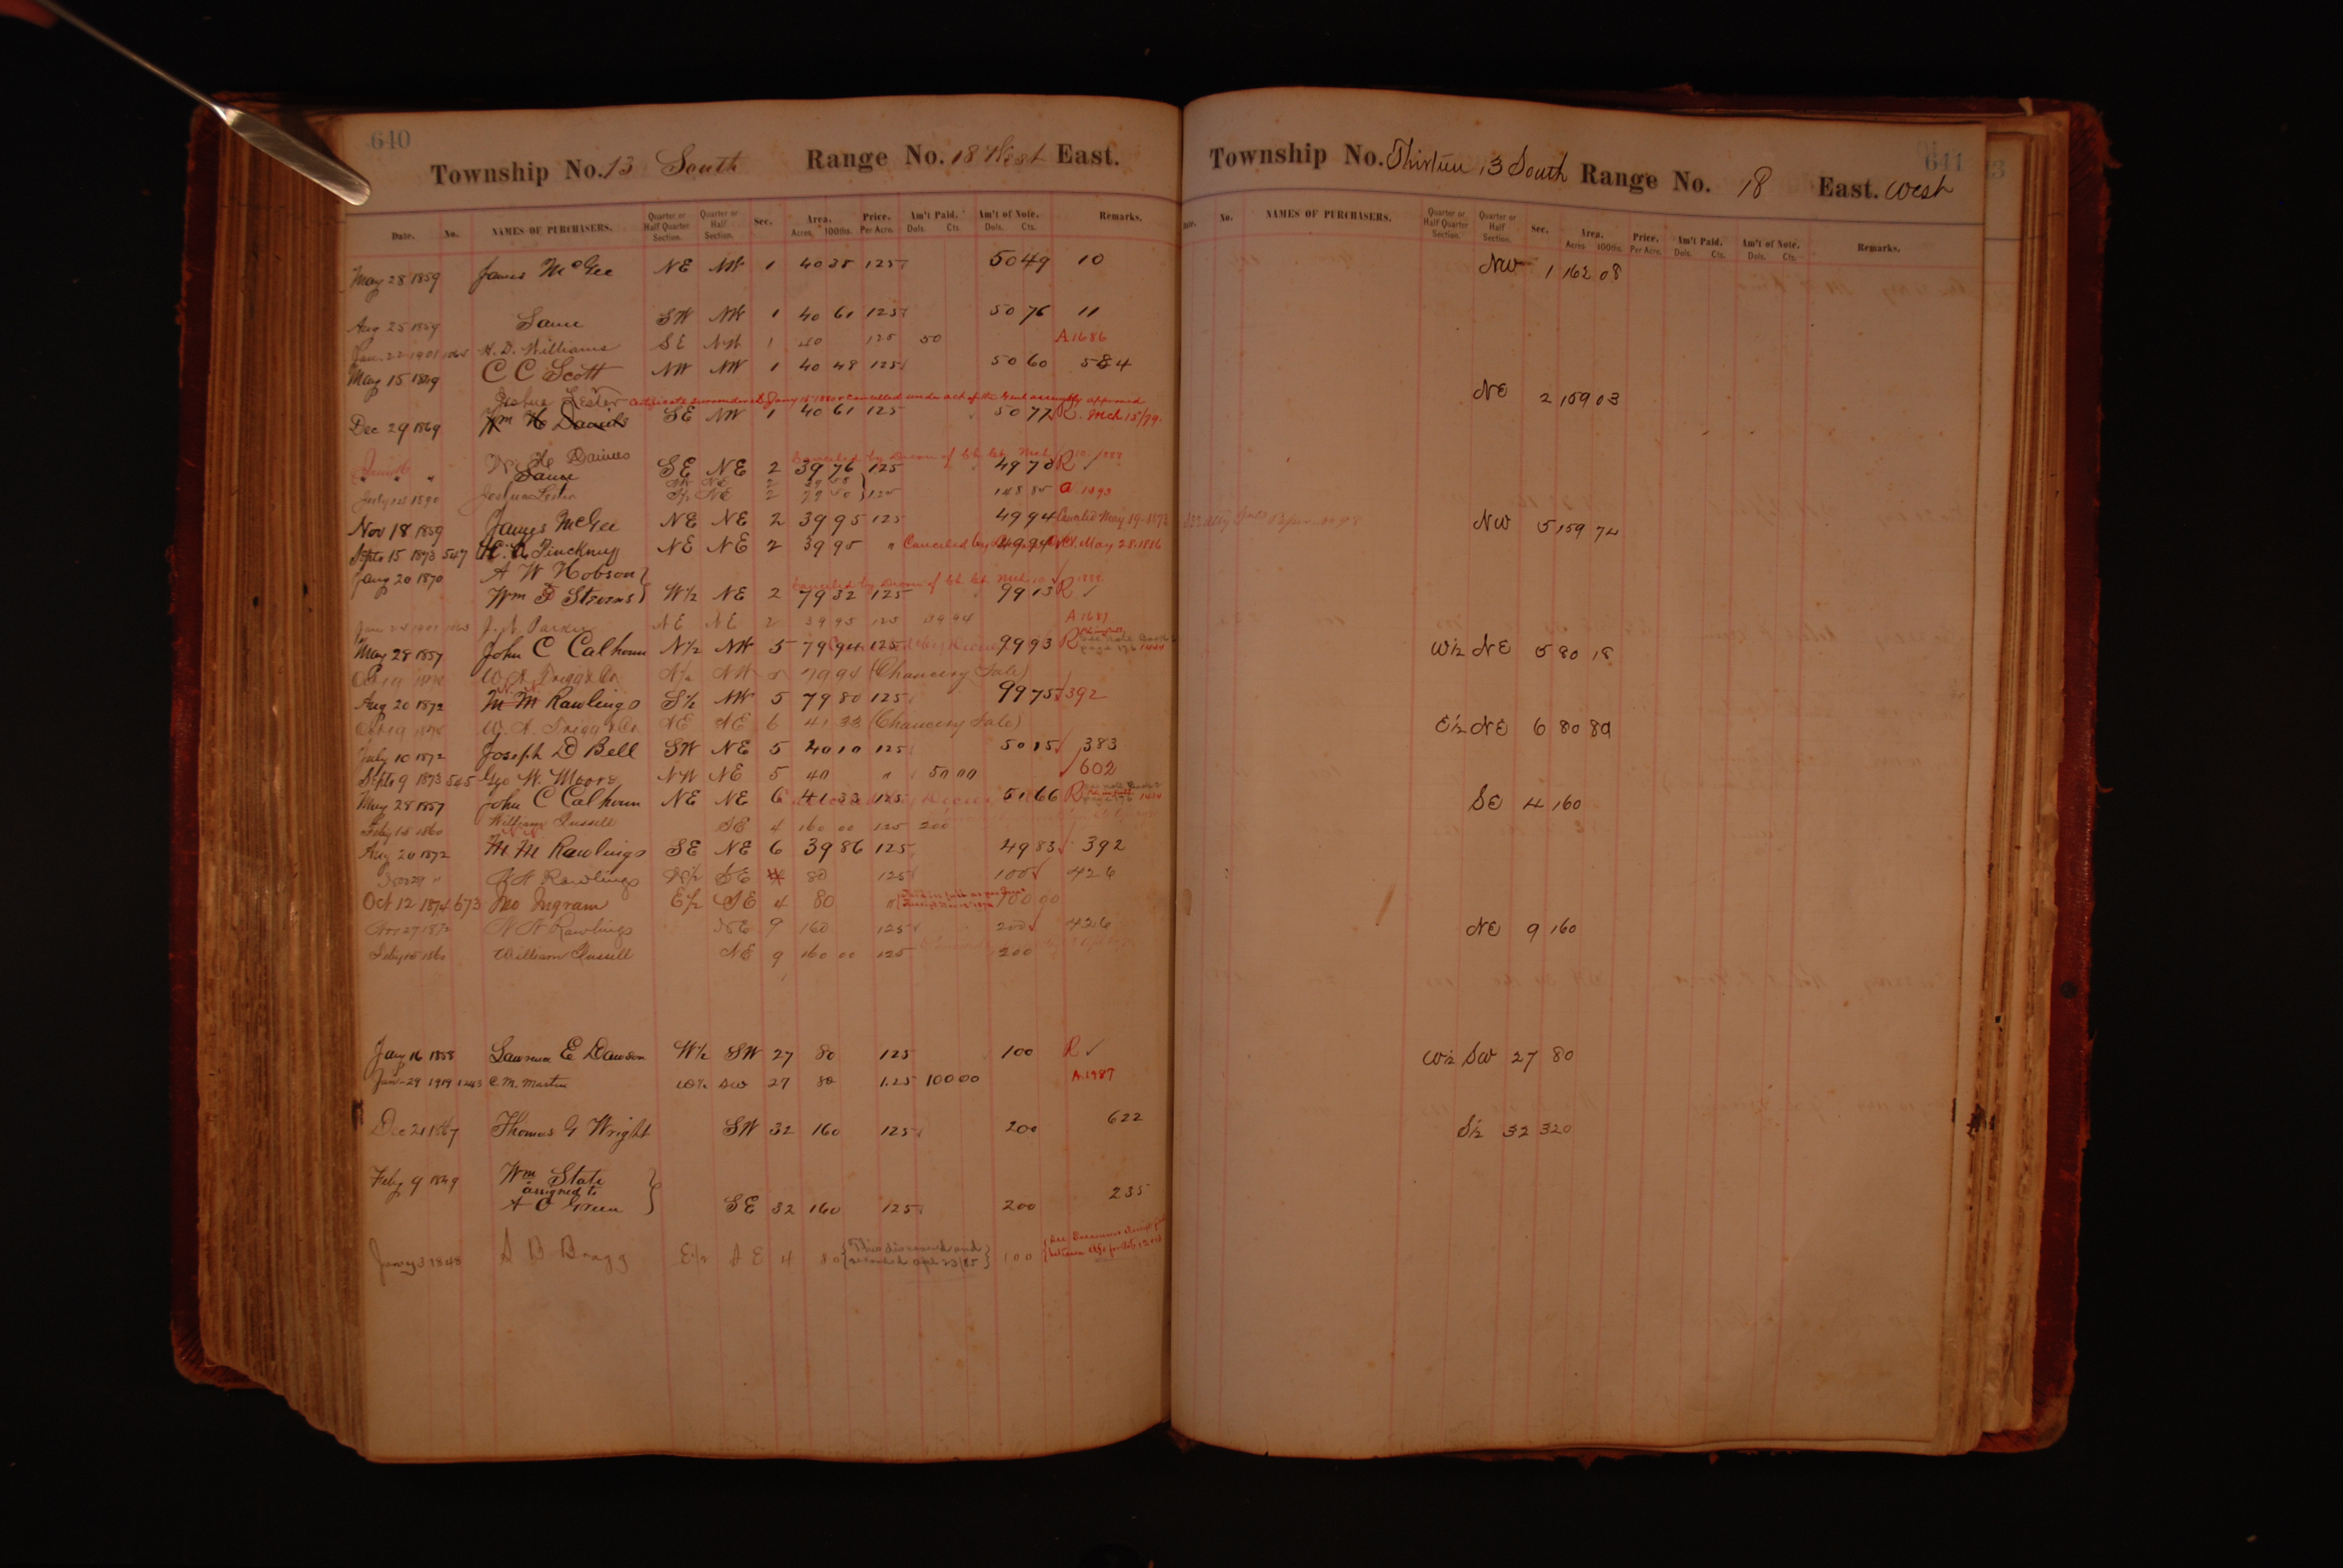 640
Township No. 13 South Range No. 18 West East.
Date. No. NAMES OF PURCHASERS. Quarter or Half Quarter Section. Quarter or Half Section. Sec. Area. Acres. 100ths. Price. Per Acre. Am't Paid. Dols. Cts. Am't of Note. Dols. Cts. Remarks.
May 28 1859 James McGee NE NW 1 40 38 125 50 49 10
Aug 25 1859 Same SW NW 1 40 61 125 50 76 11
Jan. 22 1901 H. D. Williams SE NW 1 40 125 50 A 1686
May 15 1849 C C Scott NW NW 1 40 48 125 50 60 584
Joshua Lester Certificate surrendered Jany 15 1880 & cancelled under act of the Genl assembly approved
Dec 29 1869 Wm H Daniels SE NW 1 40 61 125 50 77 R. Mch 15/79.
H Daines Canceled by Decree of Ch. Ct. Mch 10. 1888
" " " Same SE NE 2 39 76 125 49 70 R ✓
NW NE 2 39 58
July 1890 Joshua Lester S½ NE 2 79 50 } 125 148 85 a. 1393
Nov 18 1859 James McGee NE NE 2 39 95 125 49 94 Canceled May 19-1873
Septr 15 1873 547 Pinckney NE NE 2 39 95 " Canceled by 49 94 May 28. 1886
Jany 20 1870 A W Hobson }
Canceled by Decree of Ch. Ct. Mch 10 1888.
Wm Stevens } W½ NE 2 79 32 125 99 13 R ✓
Jan 1901 1063 J. N. Parker NE NE 2 39 95 125 49 94 A 1687
May 28 1857 John C Calhoun N½ NW 5 79 94 125 99 93 R See note Book 2 page 176
Oct 19 W. A. Trigg & Co N½ NW 5 79 94 (Chancery Sale)
Aug 20 1872 M M Rawlings S½ NW 5 79 80 125 99 75 392
Oct 19 W. A. Trigg & Co. NE NE 6 41 33 (Chancery Sale)
July 10 1872 Joseph D Bell SW NE 5 40 10 125 50 15 383
Septr 9 1873 545 Geo W. Moore NW NE 5 40 " 50 00 602
May 28 1857 John C Calhoun NE NE 6 41 33 125 51 66 R See note Book 2 page 176
Feby 15 1860 William Russell SE 4 160 00 125 200
Aug 20 1872 M M Rawlings SE NE 6 39 86 125 49 83 392
Nov 27 " N A Rawlings W½ SE 4 80 125 100 426
Oct 12 1874 673 Geo Ingram E½ SE 4 80 " 100 00
Nov 27 1872 N A Rawlings NE 9 160 125 200 426
Feby 15 1860 William Russell NE 9 160 00 125 200
Jany 16 1858 Lawrence E Dawson W½ SW 27 80 125 100 R ✓
Jan-29 1919 1243 C. M. Martin W½ SW 27 80 1.25 100 00 A. 1987
Dec 21 1867 Thomas G Wright SW 32 160 125 200 622
Feby 9 1849 Wm State
assigned to
A O Green } SE 32 160 125 200 235
Jany 3 1848 S D Bragg E½ SE 4 80 {This discovered and
entered Apl 23/85} 100
641
Township No. Thirteen 13 South Range No. 18 East. West
Date. No. NAMES OF PURCHASERS. Quarter or Half Quarter Section. Quarter or Half Section. Sec. Area. Acres. 100ths. Price. Per Acre. Am't Paid. Dols. Cts. Am't of Note. Dols. Cts. Remarks.
NW 1 162 08
NE 2 159 03
NW 5 159 74
W½ NE 5 80 18
E½ NE 6 80 89
SE 4 160
NE 9 160
W½ SW 27 80
S½ 32 320